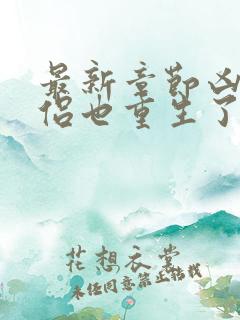 最新章節凶
侶也重生了
花想衣裳
未经同意禁止转载